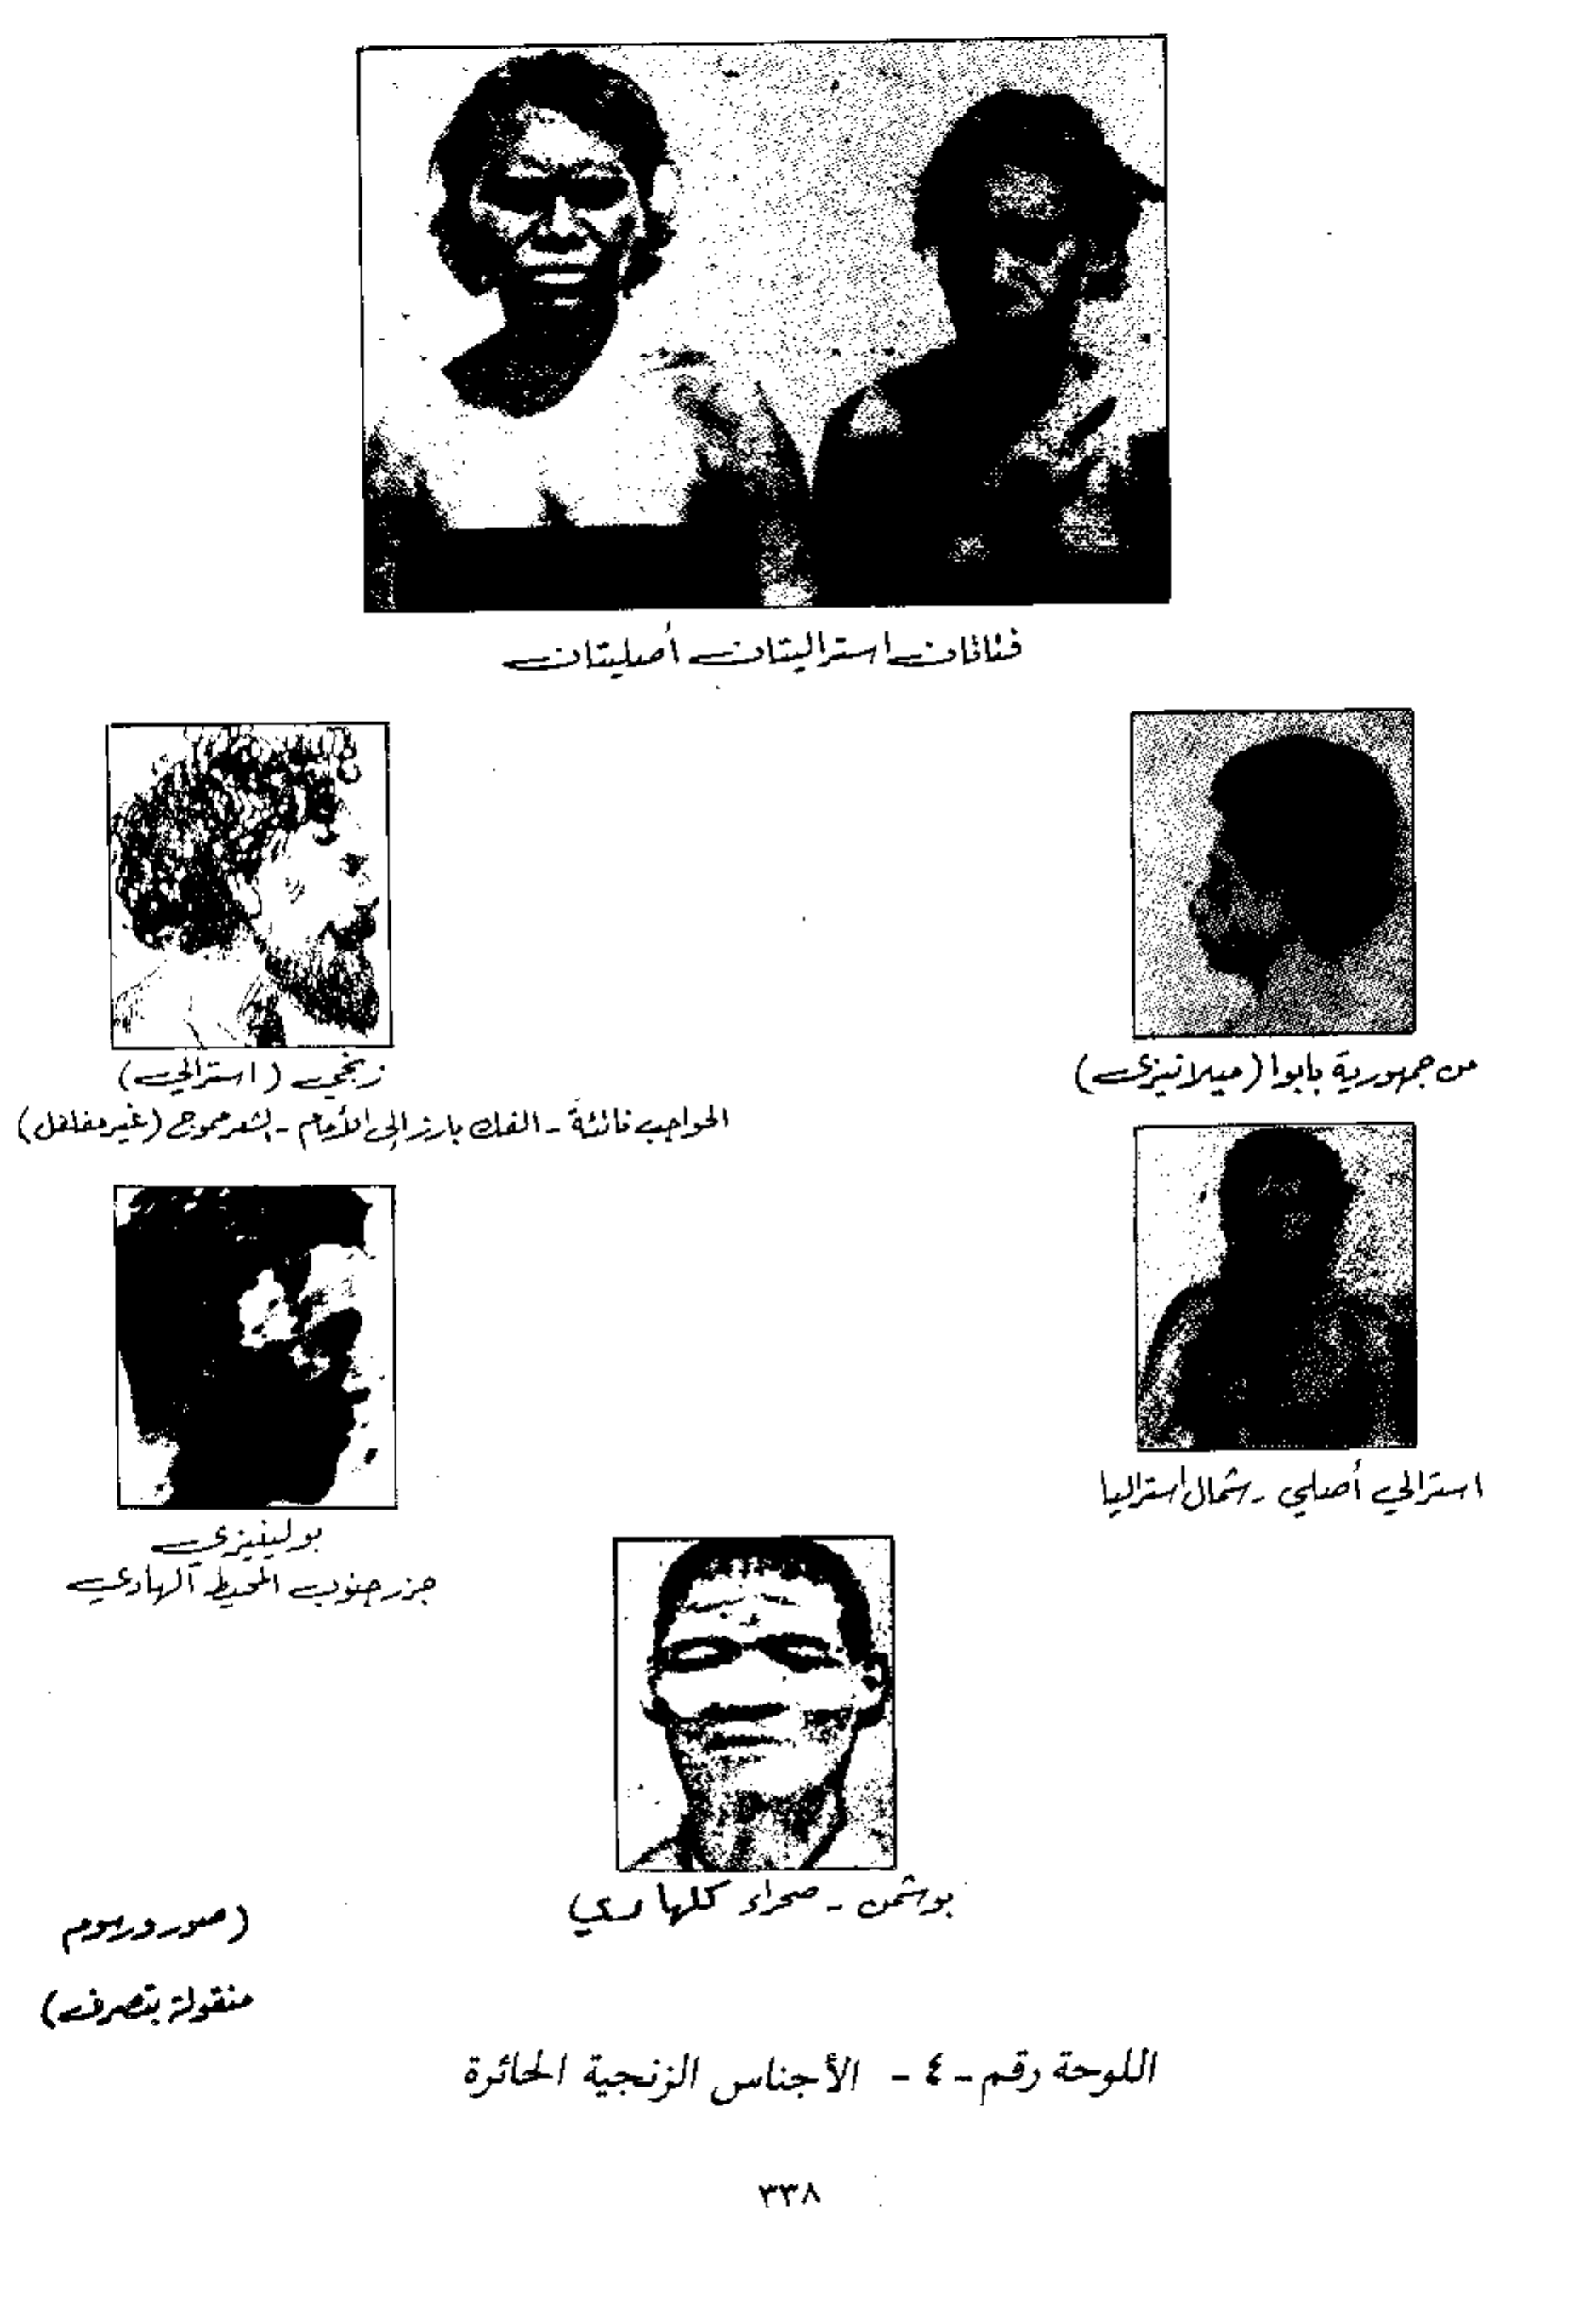 فتاتان استراليتان أصليتان
من جمهورية بابوا (ميلانيزي)
زنجي (استرالي)
الحواجب ناتئة - الفك بارز إلى الأمام - الشعر مموج (غير مفلفل)
استرالي أصلي - شمال استراليا
بولينيزي
جزر جنوب المحيط الهادي
بوشمن - صحراء كلهاري
(صور ورسوم
منقولة بتصرف)
اللوحة رقم - ٤ - الأجناس الزنجية الحائرة
٣٣٨